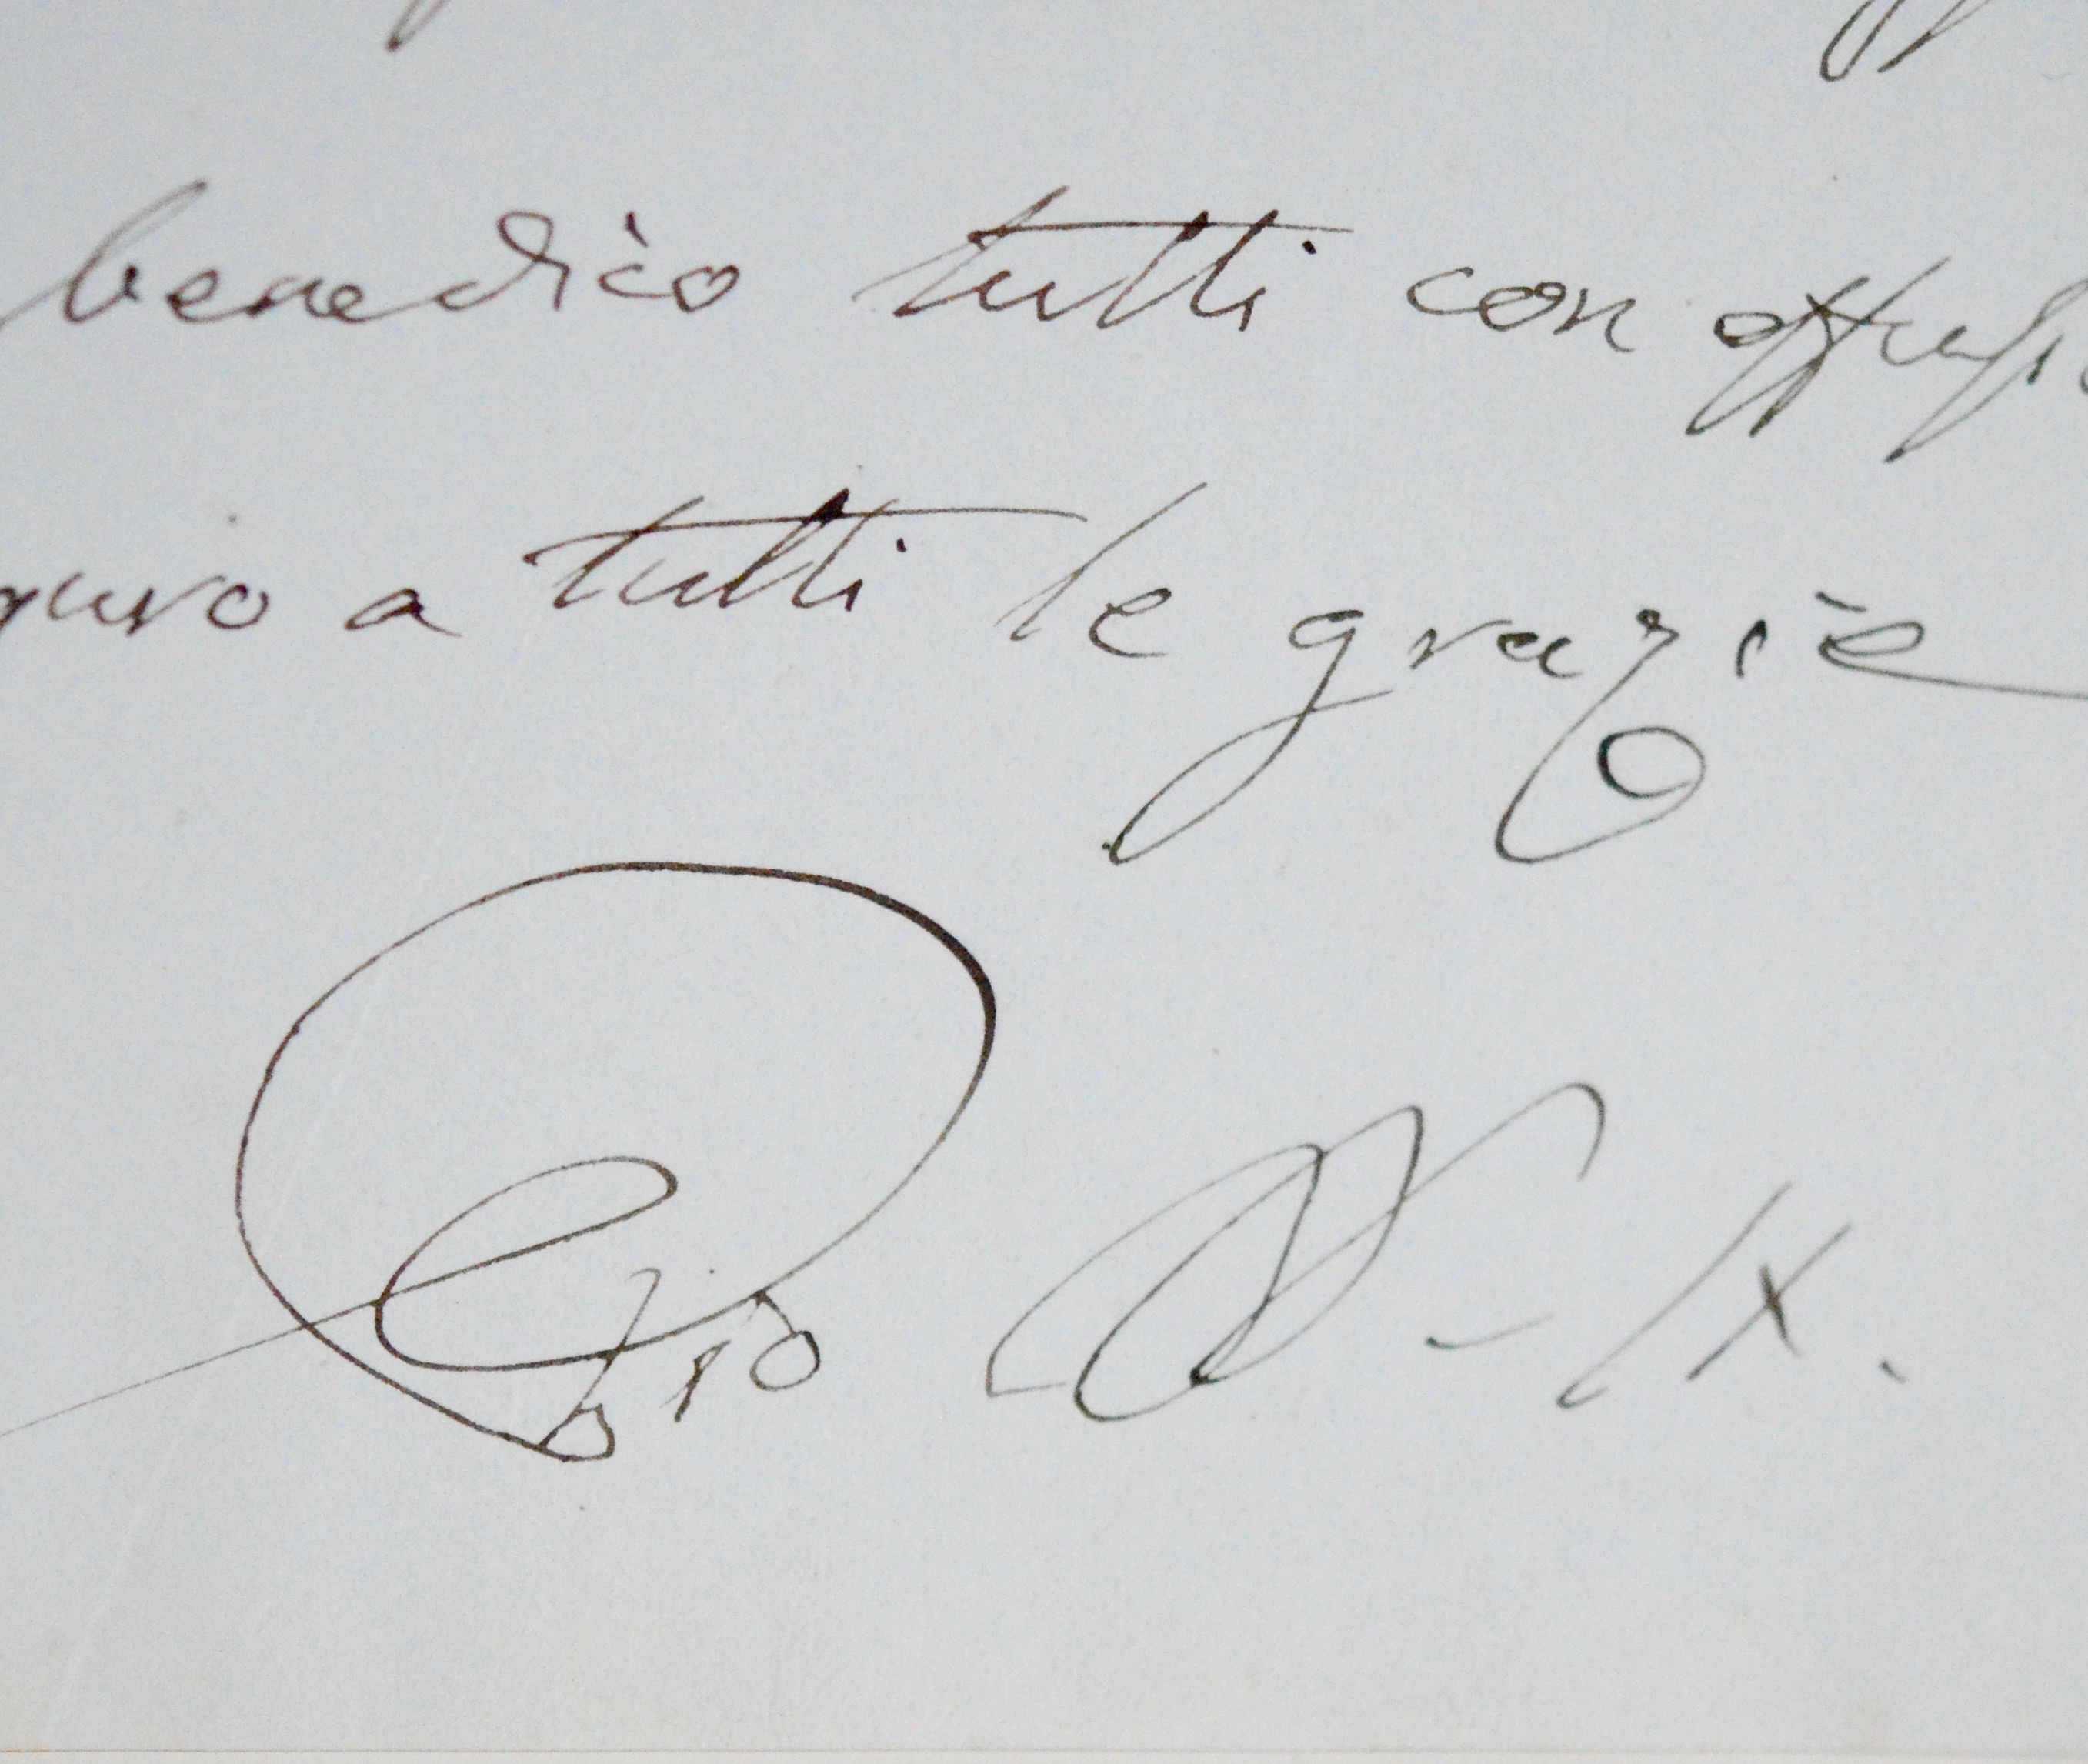 benedico tutti con effusio
guro a tutti le grazie
Pio PP. IX.